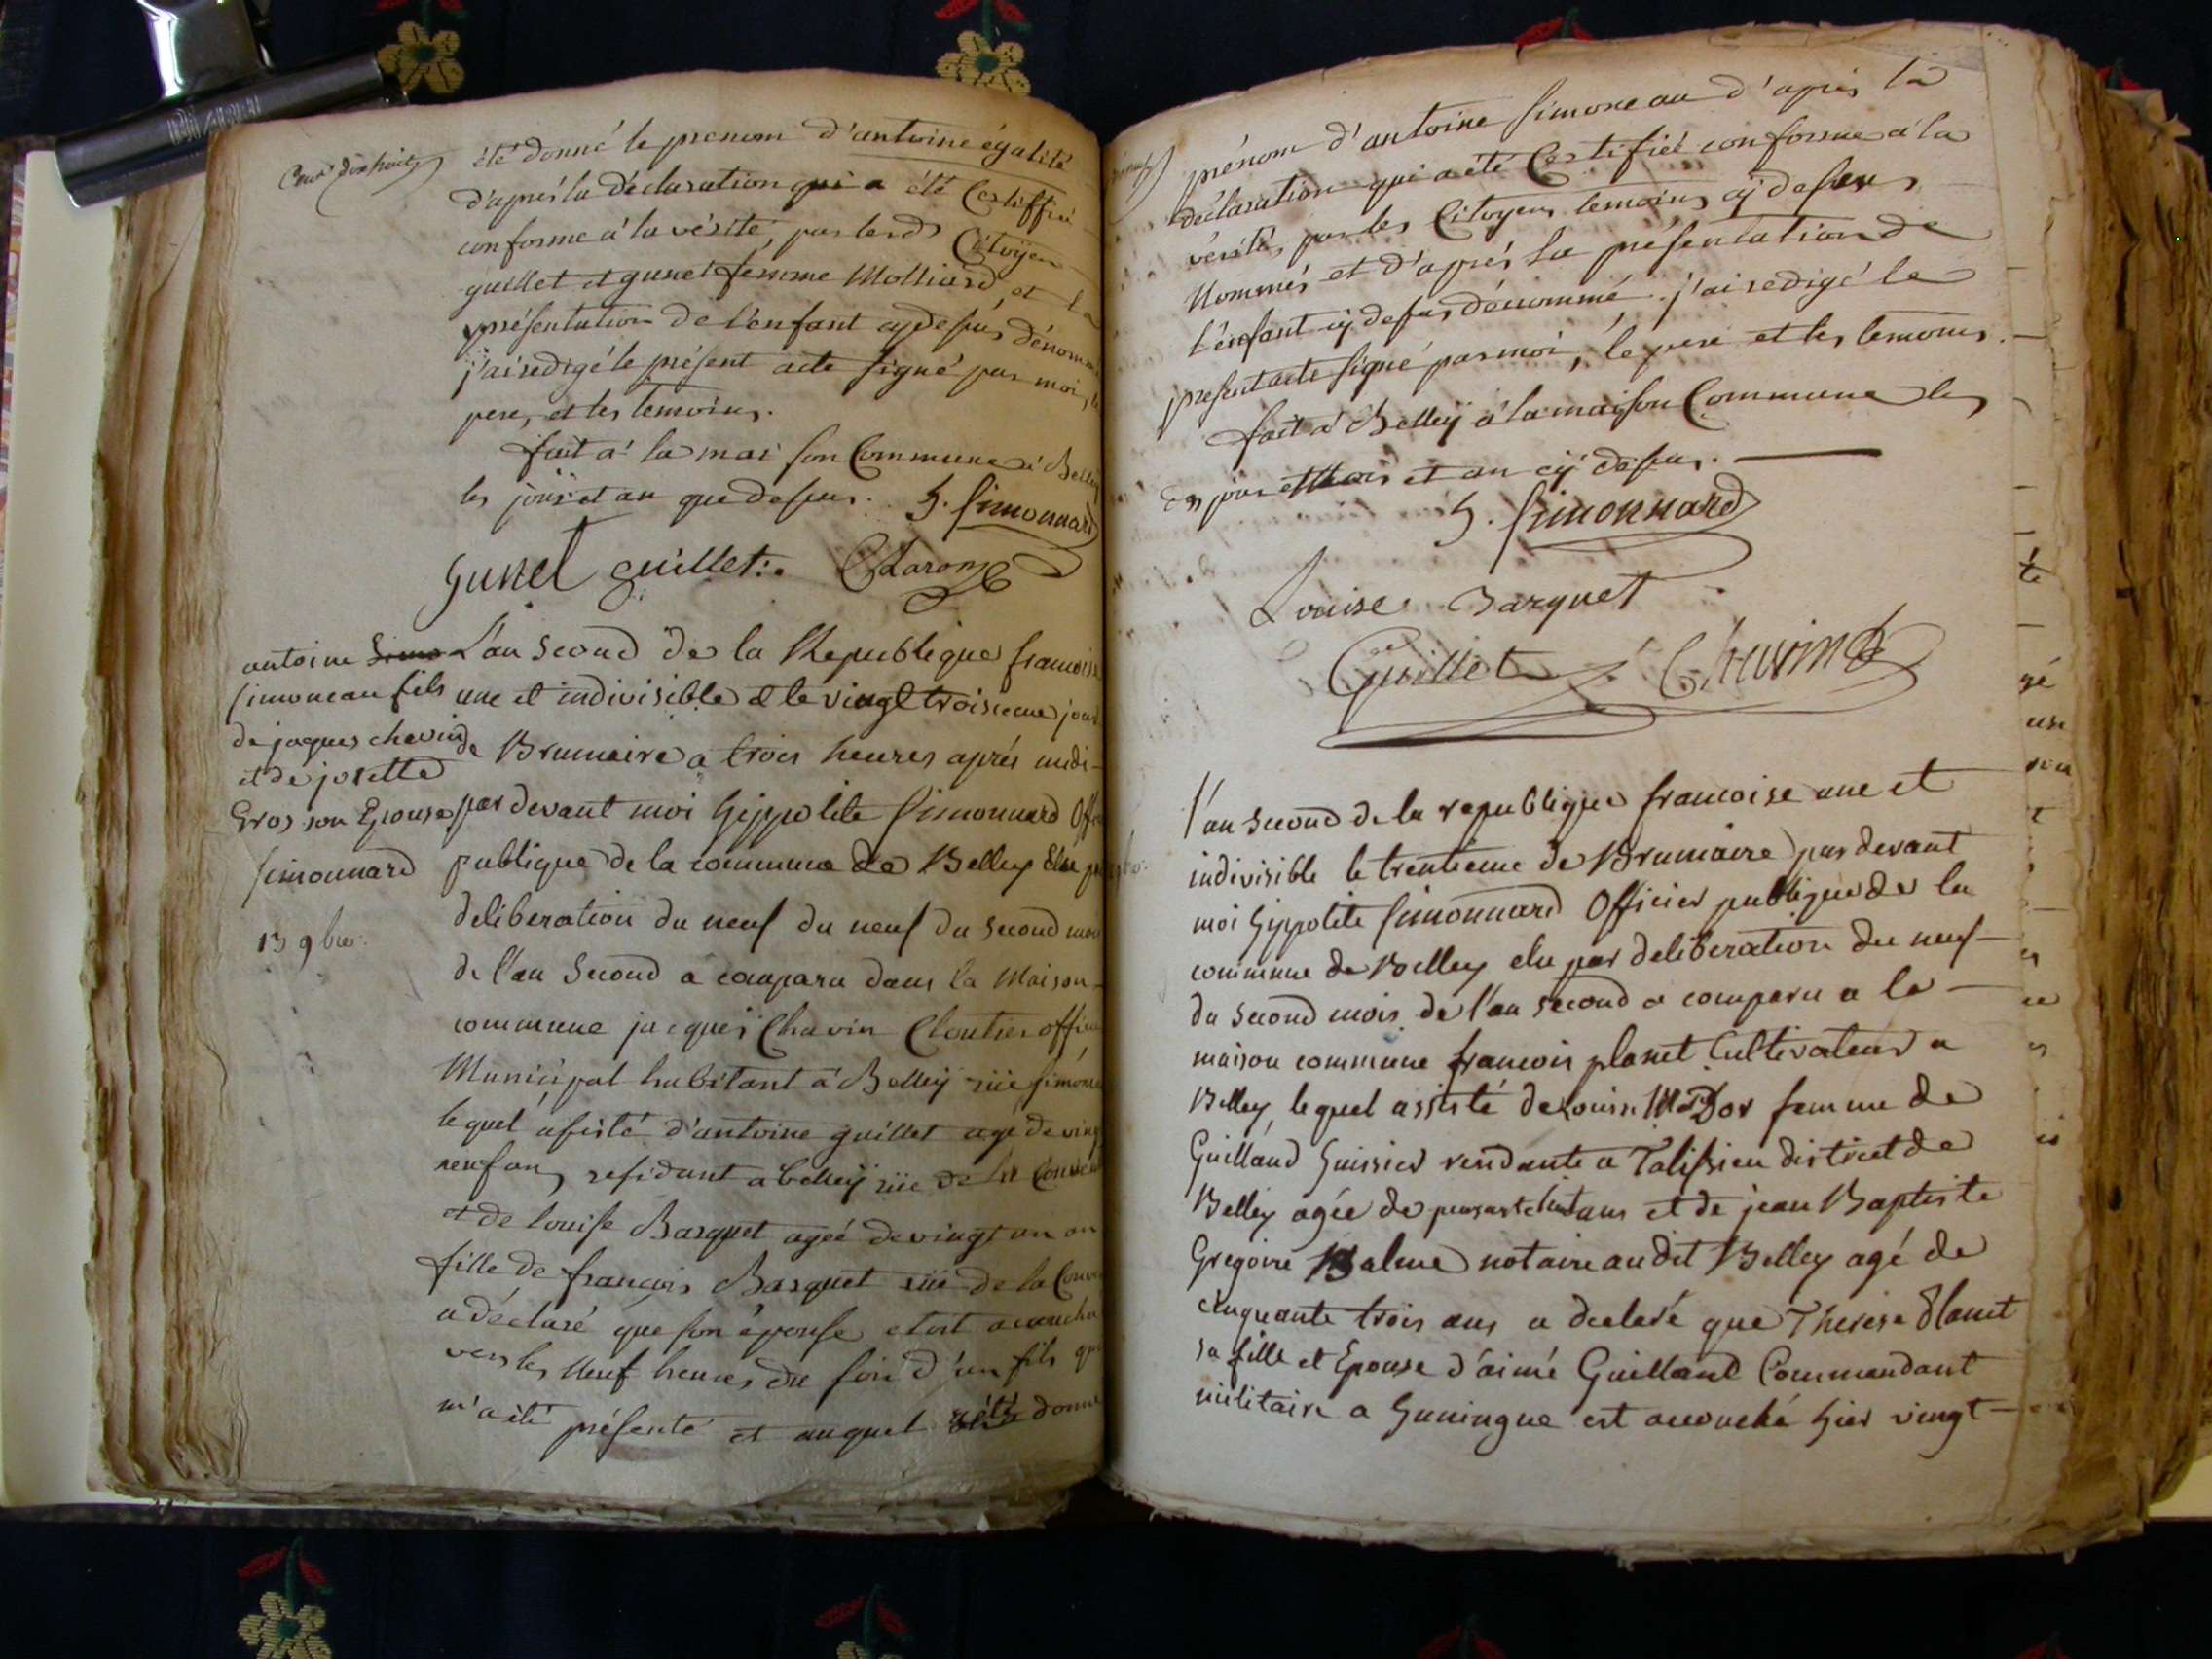 Cent dix huit
été donné le prenom d'antoine égalité
d'après la déclaration qui a été Certiffié
conforme a la vérité, par lesd Citoyen
guillet et gunet femme Molliard, et la
présentation de l'enfant cy desus dénomm
j'ai redigé le présent acte signé par moi, le
pere, et les temoins.
fait a la maison Commune a Belley
les jour et an que desus. h. Simonnard
Gunet guillet Charon
antoine Simo
simoneau fils
de jaques chavin
et de josette
Gros son Epouse
simonnard
13 9bre.
L'an Second de la Republique francoise
une et indivisible & le vingt troisieme jour
de Brumaire a trois heures aprés midi
par devant moi hippolite Simonnard Offi
publique de la commune de Belley Elu pa
deliberation du neuf du neuf du second moi
de l'an Second a comparu dans la Maison
commune jacques Chavin Cloutier offici
Municipal habitant a Belley rüe simone
lequel assisté d'antoine guillet agé de ving
neuf ans residant a belley rüe de la Conven
et de louise Barquet ageé de vingt un an
fille de françois Barquet rüe de la Conv
a déclaré que son épouse etoit accouché
vers les Neuf heures du soir d'un fils qui
m'a été présenté et auquel a été donné
prénom d'antoine simoneau d'après la
déclaration qui a été Certifié conforme a la
vérité, par les Citoyens temoins cy desus
Nommés et d'après la présentation de
l'enfant cy desus dénommé. j'ai redigé le
present acte signé par moi, le pere et les temoins.
fait a Belley a la maison Commune les
jour et Mois et an cy desus.
h. Simonnard
Louise Barquet
Guillet Chavin
l'an second de la republique francoise une et
indivisible le trentieme de Brumaire par devant
moi hippolite Simonnard Officier publique de la
commune de Belley elu par deliberation du neuf
du second mois de l'an second a comparu a la
maison commune francois planet Cultivateur a
Belley, lequel assisté de Louise femme de
Guilland huissier residante a Talissieu district de
Belley agée de ans et de jean Baptiste
Gregoire Balme notaire audit Belley agé de
cinquante trois ans a declaré que Therese Planet
sa fille et Epouse d'aimé Guilland Commandant
militaire a huningue est accouché hier vingt